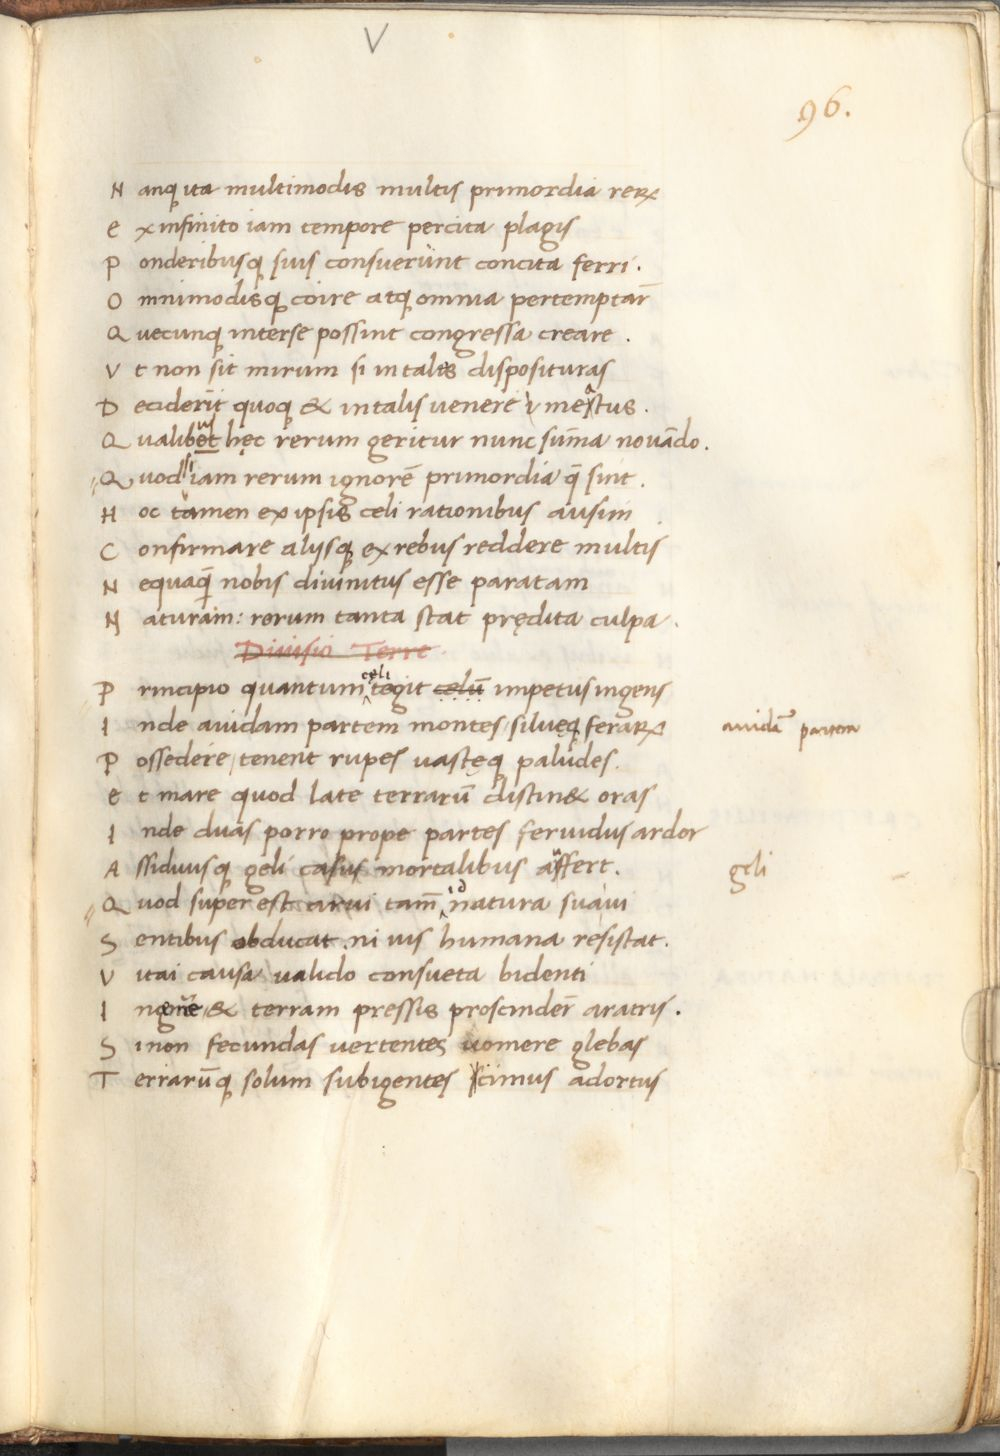 V
96.
Nanq ita multimodis multis primordia rerꝝ
Ex infinito iam tempore percita plagis
Ponderibusq suis consuerunt concita ferri.
Omnimodisq coire atq omnia pertemptar̄
Quecunq interse possint congressa creare.
Vt non sit mirum si in talis disposituras
Deciderīt quoq & in talis venere meatus.
Qualibet hęc rerum geritur nunc sum̄a nouādo.
Quod si iam rerum ignorē primordia q̄ sint.
Hoc tamen ex ipsis celi rationibus ausim
Confirmare alijsq ex rebus reddere multis
Nequaq̄ nobis diuinitus esse paratam
Naturam: rerum tanta stat prędita culpa.
Diuisio Terre
Principio quantum celi tegit celū impetus ingens
Inde auidam partem montes siluęq ferarꝝ auidā partem
Possedere, tenent rupes uastęq paludes.
Et mare quod late terrarū distin& oras
Inde duas porro prope partes feruidus ardor
Assiduusq geli casus mortalibus affert. geli
Quod super est arui tam̄ id natura sua ui
Sentibus obducat ni uis humana resistat.
Vitai causa ualido consueta bidenti
Ingere & terram pressis proscinder̄ aratris.
Si non fecundas uertentes uomere glebas
Terrarūq solum subigentes cimus adortus